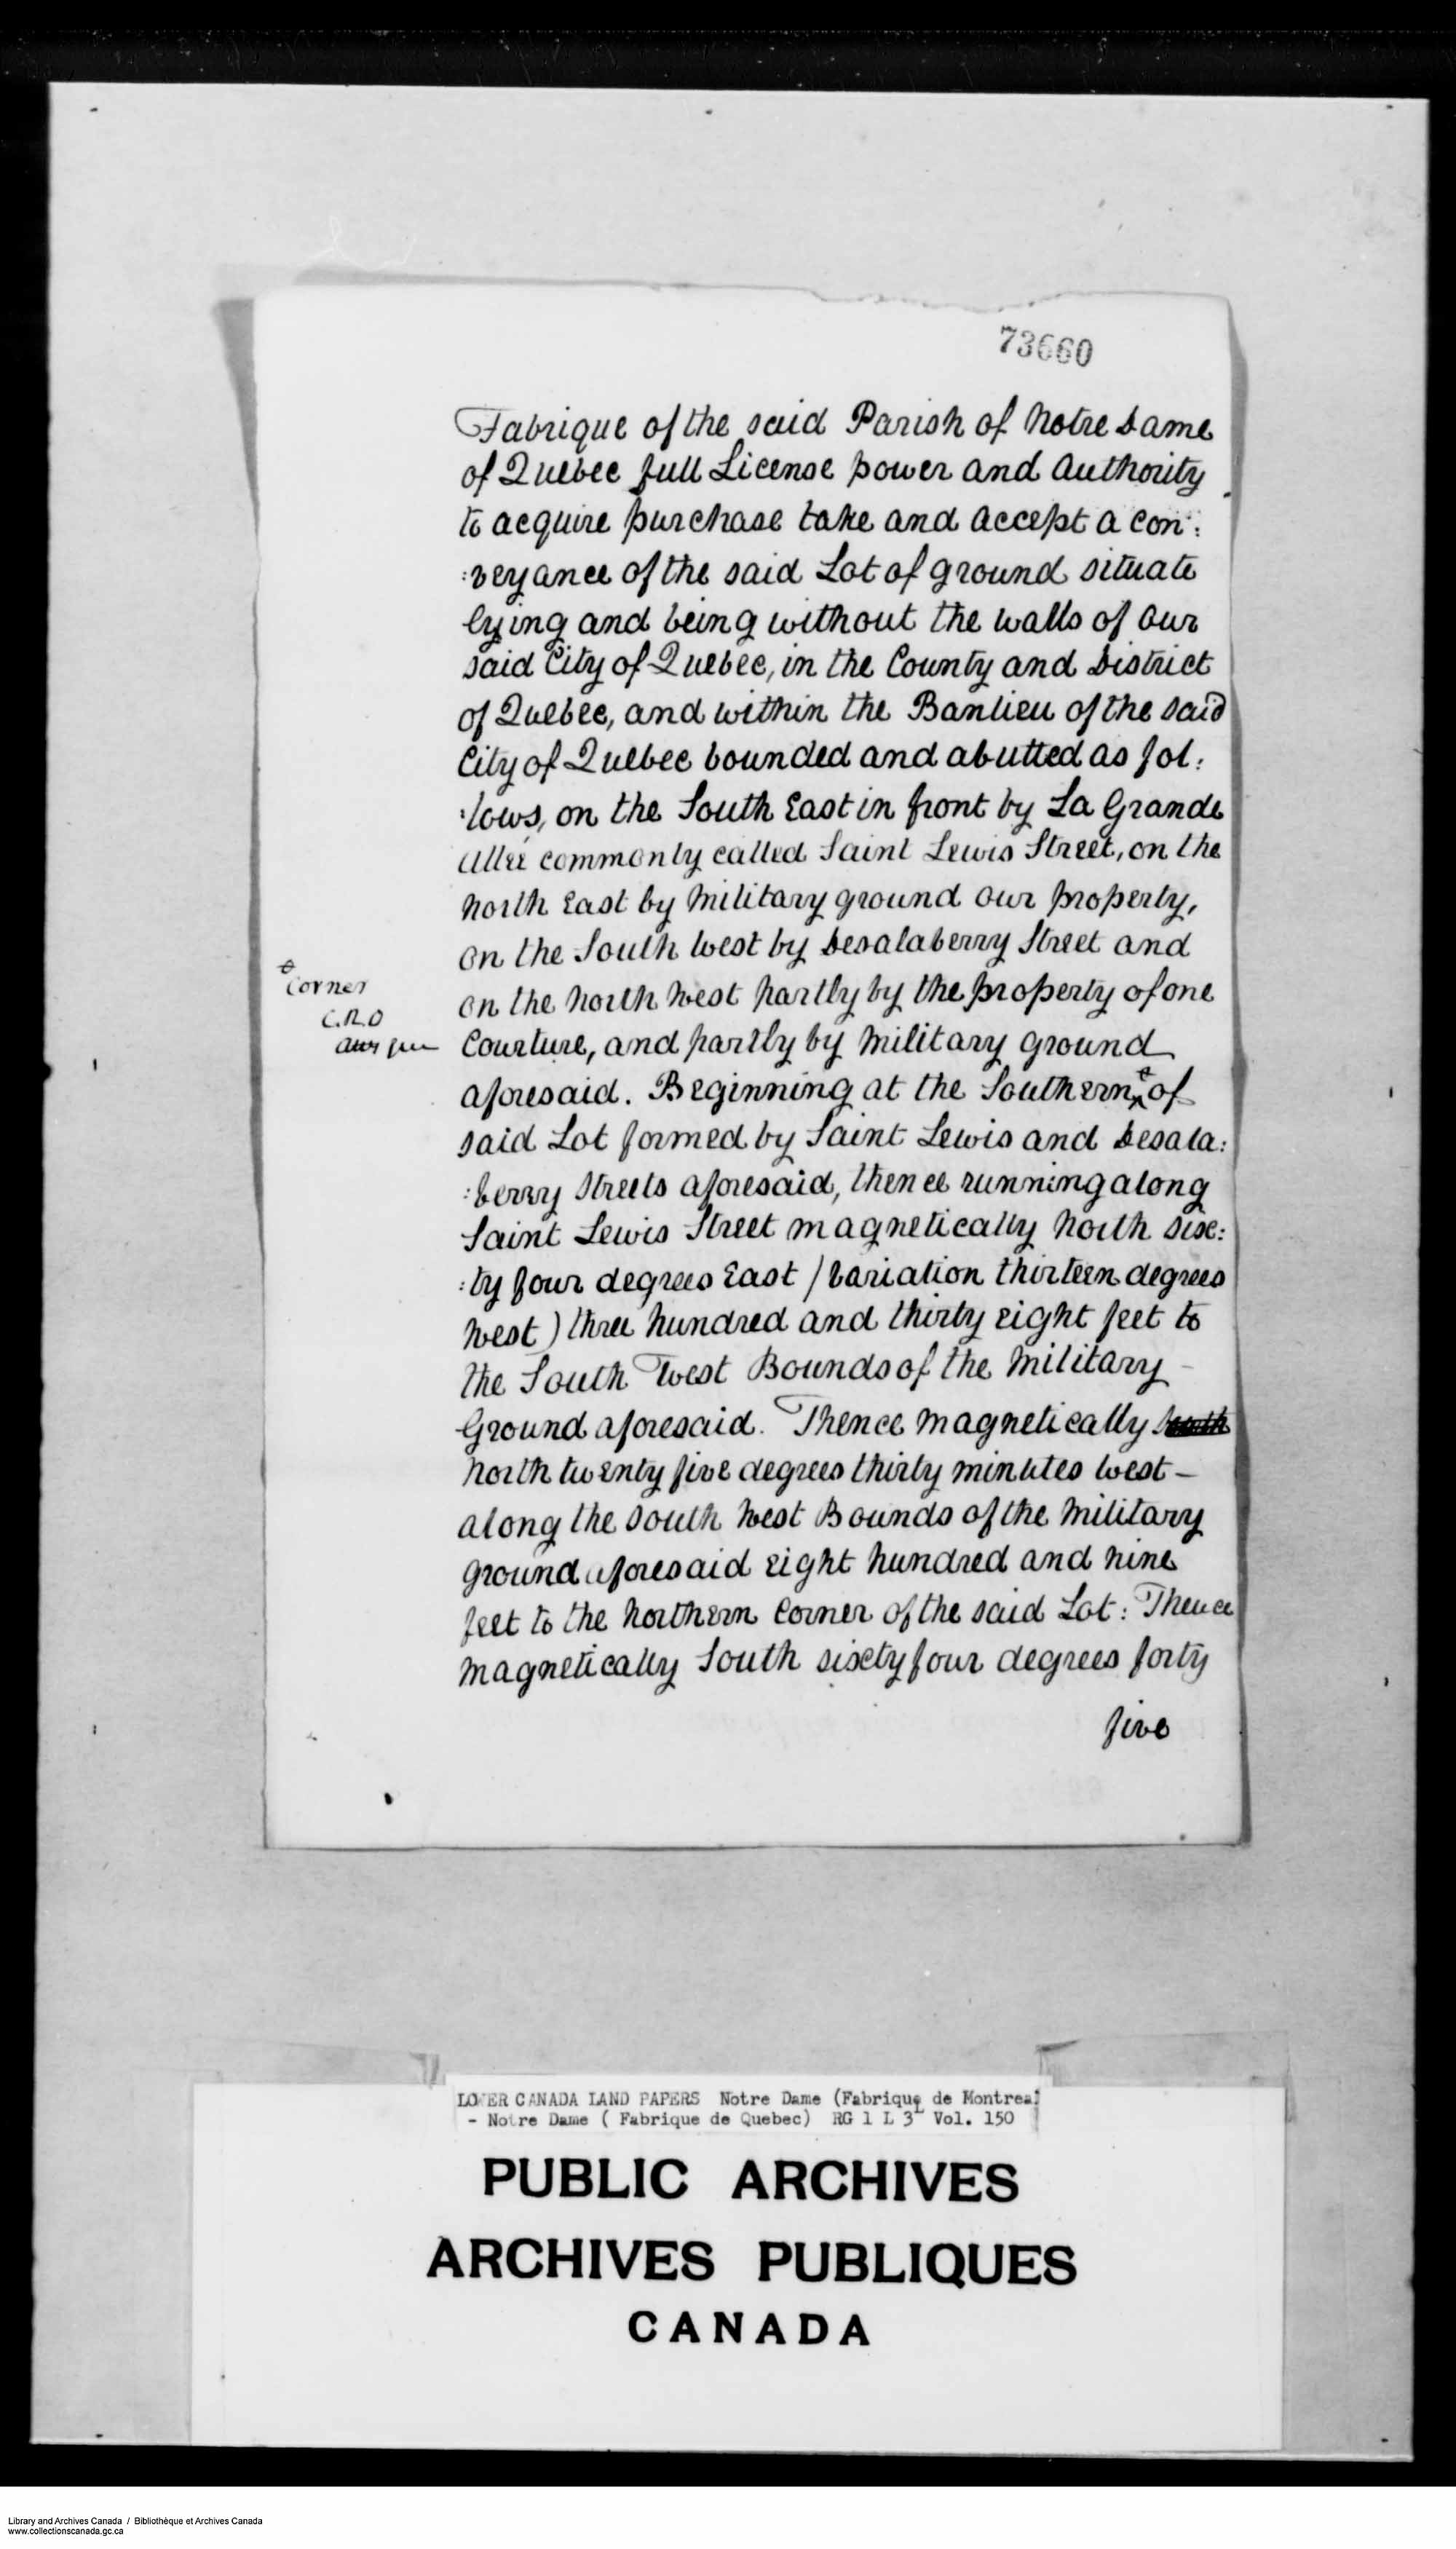 73660
Fabrique of the said Parish of Notre Dame
of Quebec full License power and Authority
to acquire purchase take and accept a con:
:veyance of the said Lot of ground situate
lying and being without the walls of our
said City of Quebec, in the County and District
of Quebec, and within the Banlieu of the said
City of Quebec bounded and abutted as fol:
:lows, on the South East in front by La Grande
Allée commonly called Saint Lewis Street, on the
North East by Military ground our property,
on the South West by Desalaberry Street and
on the North West partly by the property of one
Couture, and partly by Military ground
aforesaid. Beginning at the Southern ^ of
said Lot formed by Saint Lewis and Desala:
:berry Streets aforesaid, thence running along
Saint Lewis Street magnetically North six:
:ty four degrees East / Variation thirteen degrees
West ) three hundred and thirty eight feet to
the South West Bounds of the Military -
Ground aforesaid. Thence magnetically South
North twenty five degrees thirty minutes West -
along the South West Bounds of the Military
ground aforesaid eight hundred and nine
feet to the Northern Corner of the said Lot: Thence
magnetically South sixty four degrees forty
five
Corner
C.R.O
LOWER CANADA LAND PAPERS Notre Dame (Fabrique de Montreal
- Notre Dame ( Fabrique de Quebec) RG 1 L 3L Vol. 150
PUBLIC ARCHIVES
ARCHIVES PUBLIQUES
CANADA
Library and Archives Canada / Bibliothèque et Archives Canada
www.collectionscanada.gc.ca